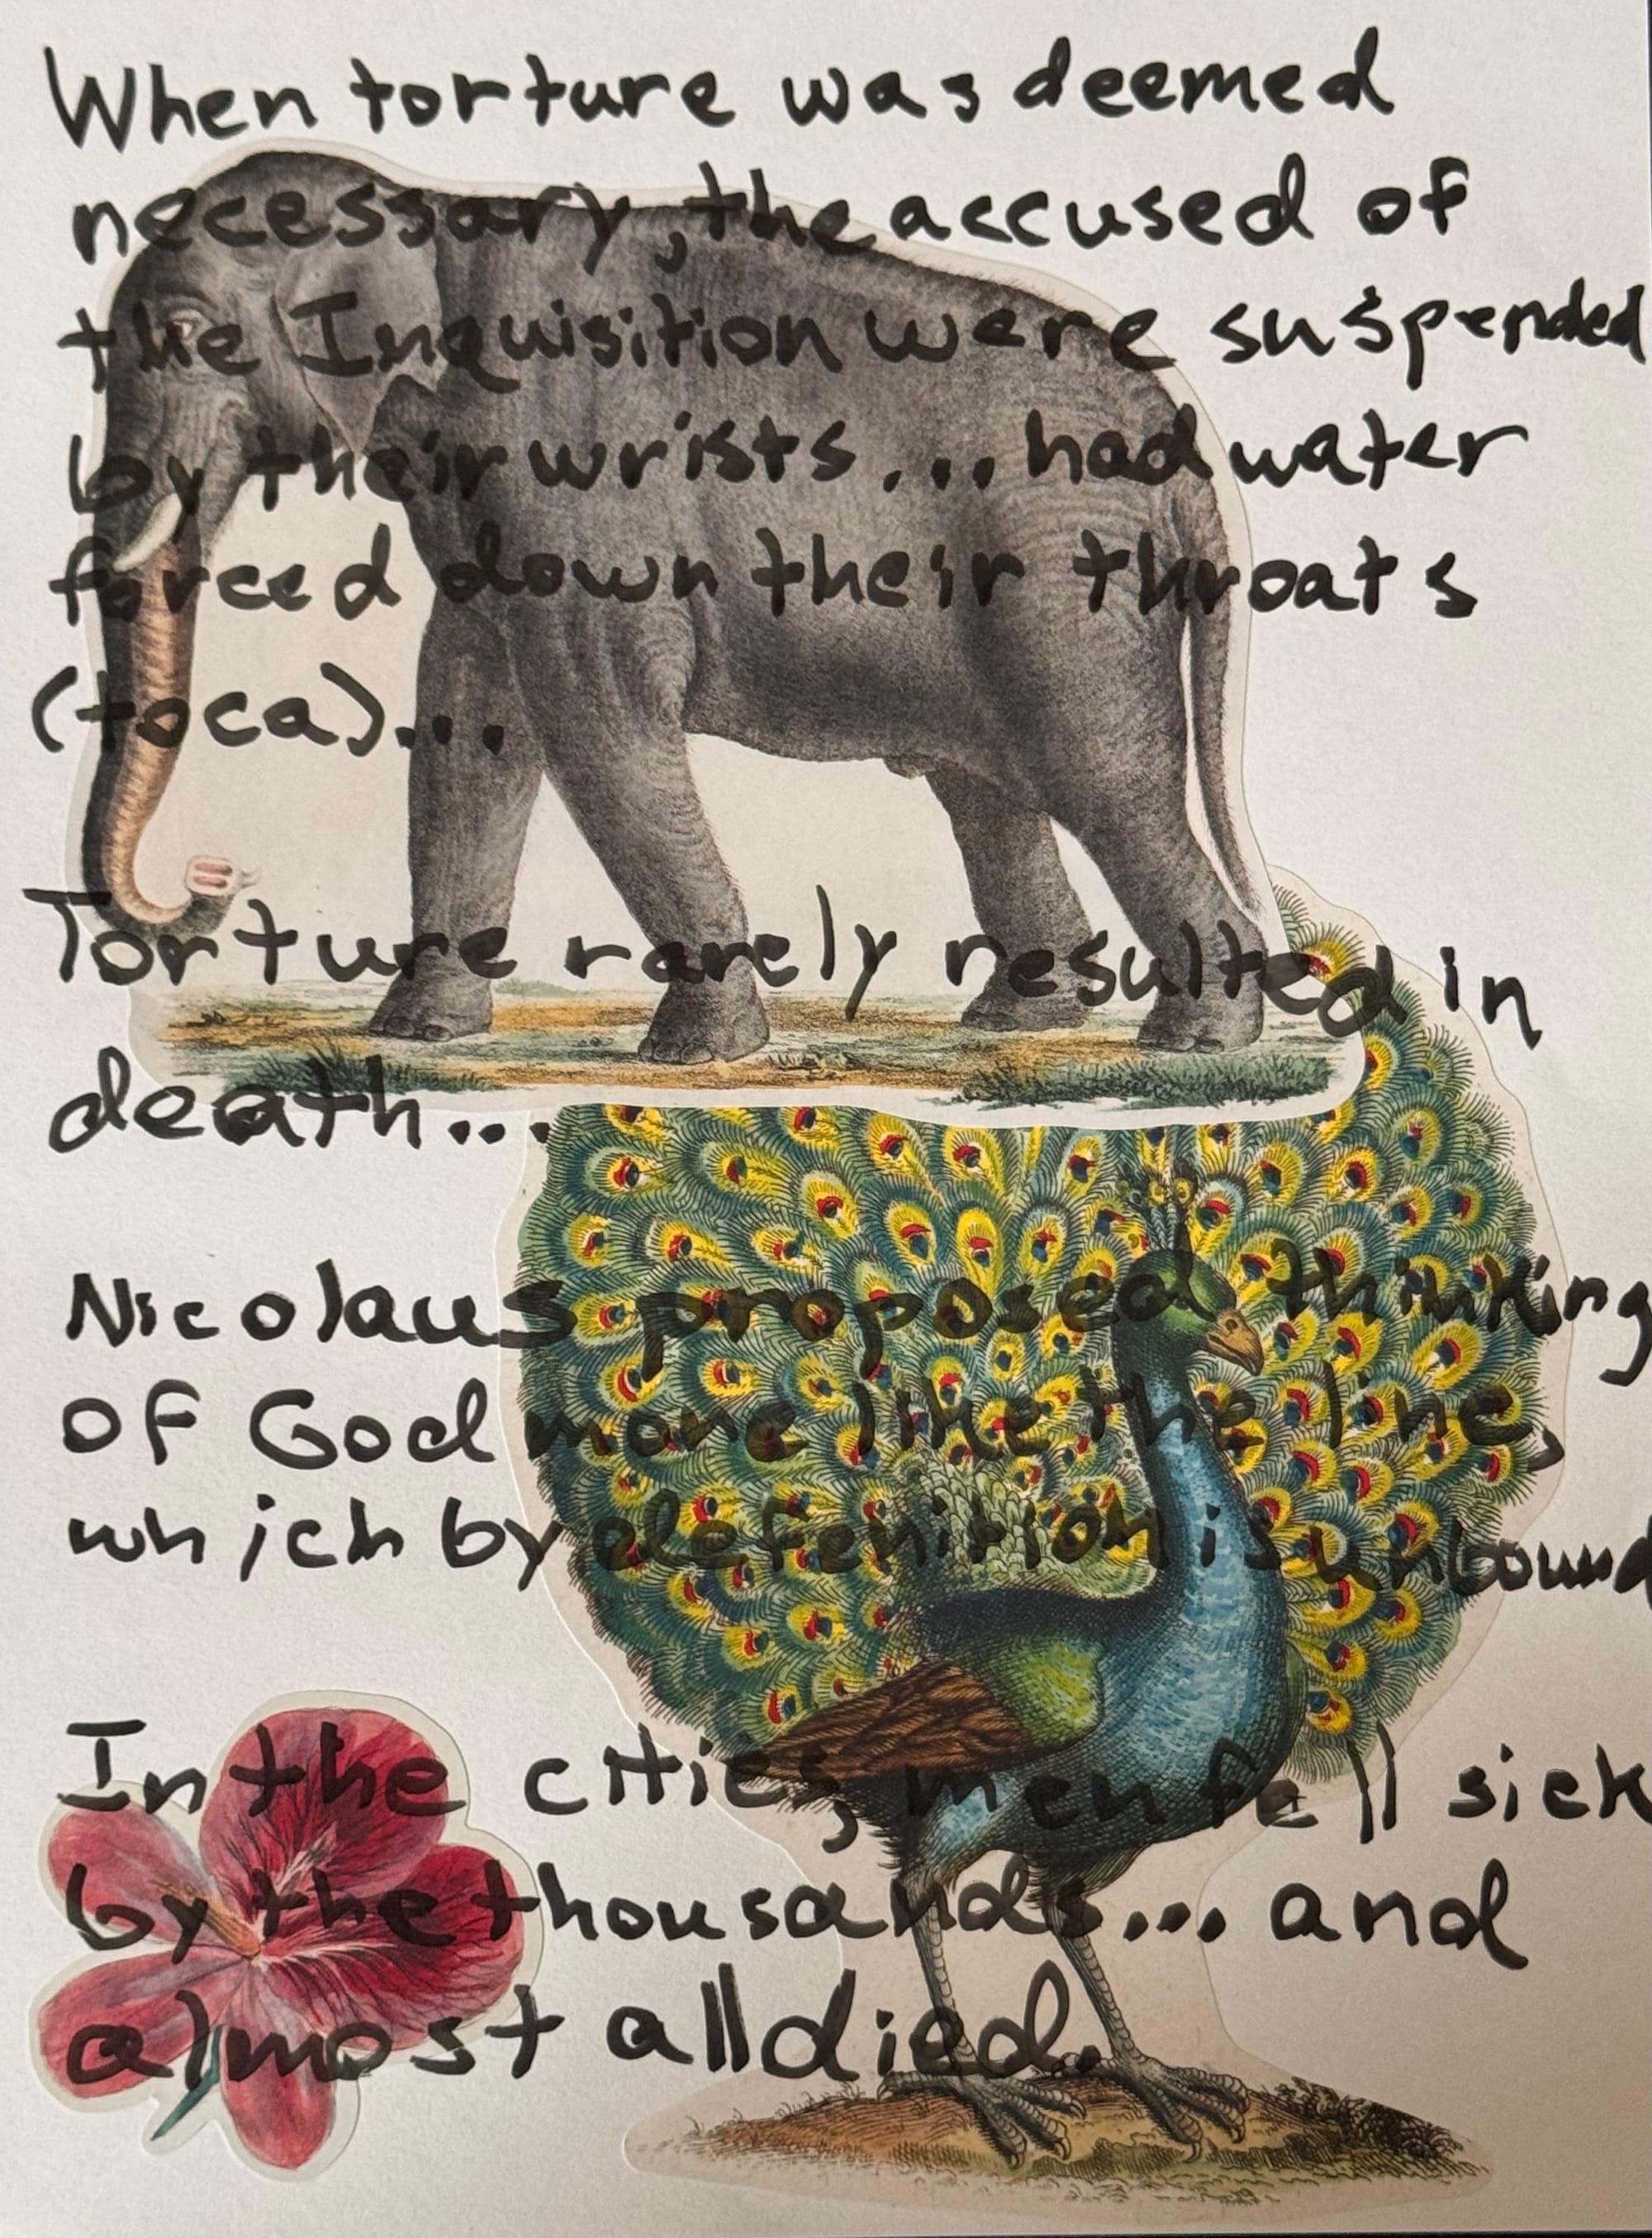 When torture was deemed
necessary, the accused of
the Inquisition were suspended
by their wrists... had water
forced down their throats
(toca)...
Torture rarely resulted in
death...
Nicolaus proposed thinking
of God more like the line,
which by defenition is unbound
In the cities, men fell sick
by the thousands... and
almost all died.